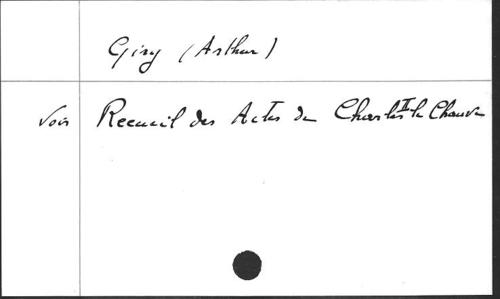 Giry (Arthur)
Voir Recueil des Actes de Charles II le Chauve